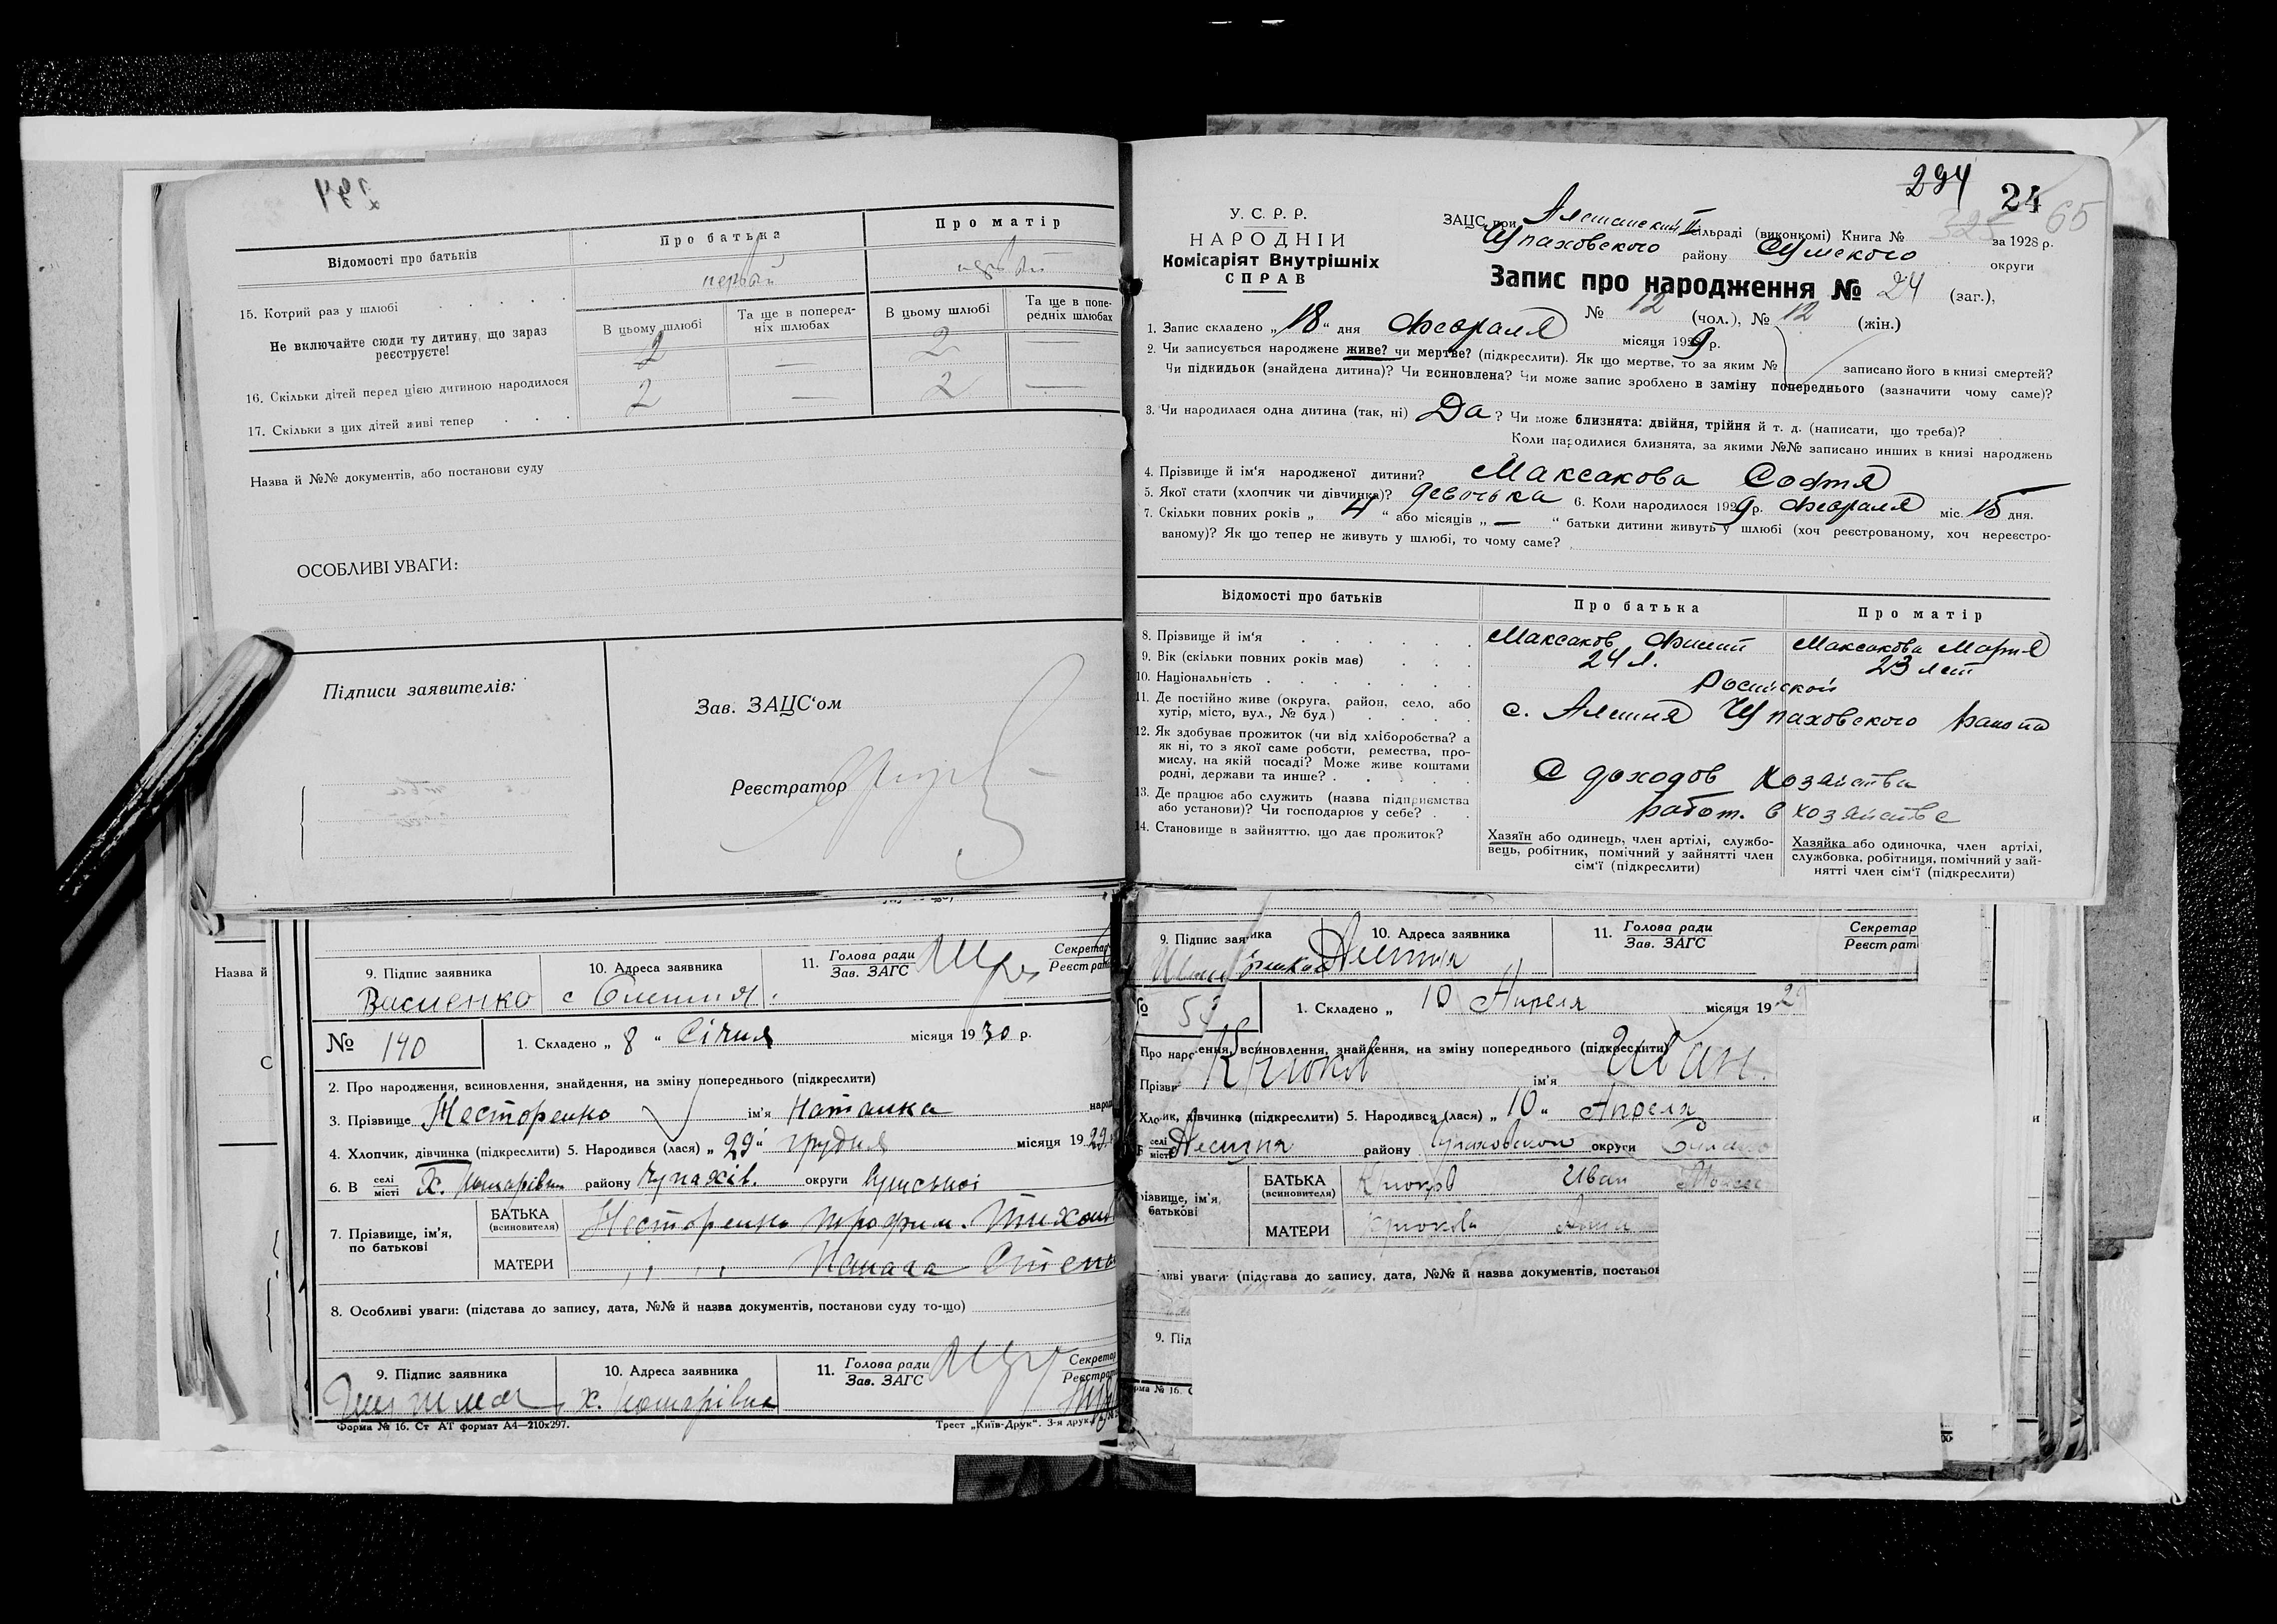 Відомості про батьків
Про батька
Про матір
15. Котрий раз у шлюбі
первый
первый
Не включайте сюди ту дитину, що зараз реєструєте!
В цьому шлюбі
Та ще в поперед-
ніх шлюбах
В цьому шлюбі
Та ще в попе-
редніх шлюбах
16. Скільки дітей перед цією дитиною народилося
2 — 2 —
17. Скільки з цих дітей живі тепер
2 — 2 —
Назва й №№ документів, або постанови суду
ОСОБЛИВІ УВАГИ:
Підписи заявителів:
Зав. ЗАЦС'ом
Реєстратор
Назва й
9. Підпис заявника
10. Адреса заявника
11. Голова ради
Зав. ЗАГС
Секретар
Реєстрат
с Олешня.
№ 140
1. Складено „ 8 “ Січня місяця 1930 р.
2. Про народження, всиновлення, знайдення, на зміну попереднього (підкреслити)
3. Прізвище Несторенко ім'я Наталка
4. Хлопчик, дівчинка (підкреслити) 5. Народився (лася) „ 29 “ грудня місяця 1929
6. В селі
місті
х. району Чупахів. округи Сумської
7. Прізвище, ім'я,
по батькові
БАТЬКА
(всиновителя)
Несторенко Трофим
МАТЕРИ
8. Особливі уваги: (підстава до запису, дата, №№ й назва документів, постанови суду то-що)
9. Підпис заявника
10. Адреса заявника
11. Голова ради
Зав. ЗАГС
Секретар
Реєстрат
Форма № 16. Ст АТ формат А4—210х297.
Трест „Київ-Друк“. 3-я друк.
294
24
65
У. С. Р. Р.
НАРОДНІЙ
Комісаріят Внутрішніх
СПРАВ
ЗАЦС при Алешанский II сільраді (виконкомі) Книга № 325 за 1928 р.
Чупаховского району Сумского округи
Запис про народження № 24 (заг.),
№ 12 (чол.), № 12 (жін.)
1. Запис складено „ 18 “ дня Февраля місяця 1929 р.
2. Чи записується народжене живе? чи мертве? (підкреслити). Як що мертве, то за яким № записано його в книзі смертей?
Чи підкидьок (знайдена дитина)? Чи всиновлена? Чи може запис зроблено в заміну попереднього (зазначити чому саме)?
3. Чи народилася одна дитина (так, ні) Да ? Чи може близнята: двійня, трійня й т. д. (написати, що треба)?
Коли народилися близнята, за якими №№ записано инших в книзі народжень
4. Прізвище й ім'я народженої дитини? Максакова Софтя
5. Якої стати (хлопчик чи дівчинка)? девочька 6. Коли народилося 1929 р. Февраля міс. 15 дня.
7. Скільки повних років „ 4 “ або місяців „ — “ батьки дитини живуть у шлюбі (хоч реєстрованому, хоч нереєстро-
ваному)? Як що тепер не живуть у шлюбі, то чому саме?
Відомості про батьків
Про батька
Про матір
8. Прізвище й ім'я
Максаков Филип
Максакова Мария
9. Вік (скільки повних років має)
24 л.
23 лет
10. Національність
Росийской
11. Де постійно живе (округа, район, село, або
хутір, місто, вул., № буд)
с. Алешня Чупаховского Района
12. Як здобуває прожиток (чи від хліборобства? а
як ні, то з якої саме роботи, ремества, про-
мислу, на якій посаді? Може живе коштами
родні, держави та инше?
С доходов хозяйства
13. Де працює або служить (назва підприємства
або установи)? Чи господарює у себе?
работ. в хозяйстве
14. Становище в зайняттю, що дає прожиток?
Хазяїн або одинець, член артілі, службо-
вець, робітник, помічний у зайнятті член
сім'ї (підкреслити)
Хазяйка або одиночка, член артілі,
службовка, робітниця, помічний у зай-
нятті член сім'ї (підкреслити)
9. Підпис заявника
10. Адреса заявника
11. Голова ради
Зав. ЗАГС
Секретар
Реєстрат
Алешня
1. Складено „ 10 Апреля місяця 1929
Про народження, всиновлення, знайдення, на зміну попереднього (підкреслити)
Крюков ім'я Иван
дівчинка (підкреслити) 5. Народився (лася) „ 10 “ Апреля
селі
місті
Алешня району округи
БАТЬКА
(всиновителя)
Крюков Иван
різвище, ім'я,
батькові
МАТЕРИ
Крюкова
уваги: (підстава до запису, дата, №№ й назва документів, постанов
9. Під